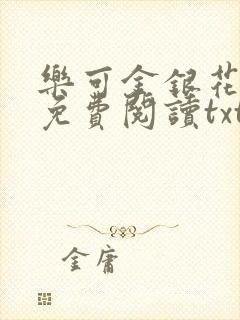 樂可金銀花
免費閱讀txt
金庸